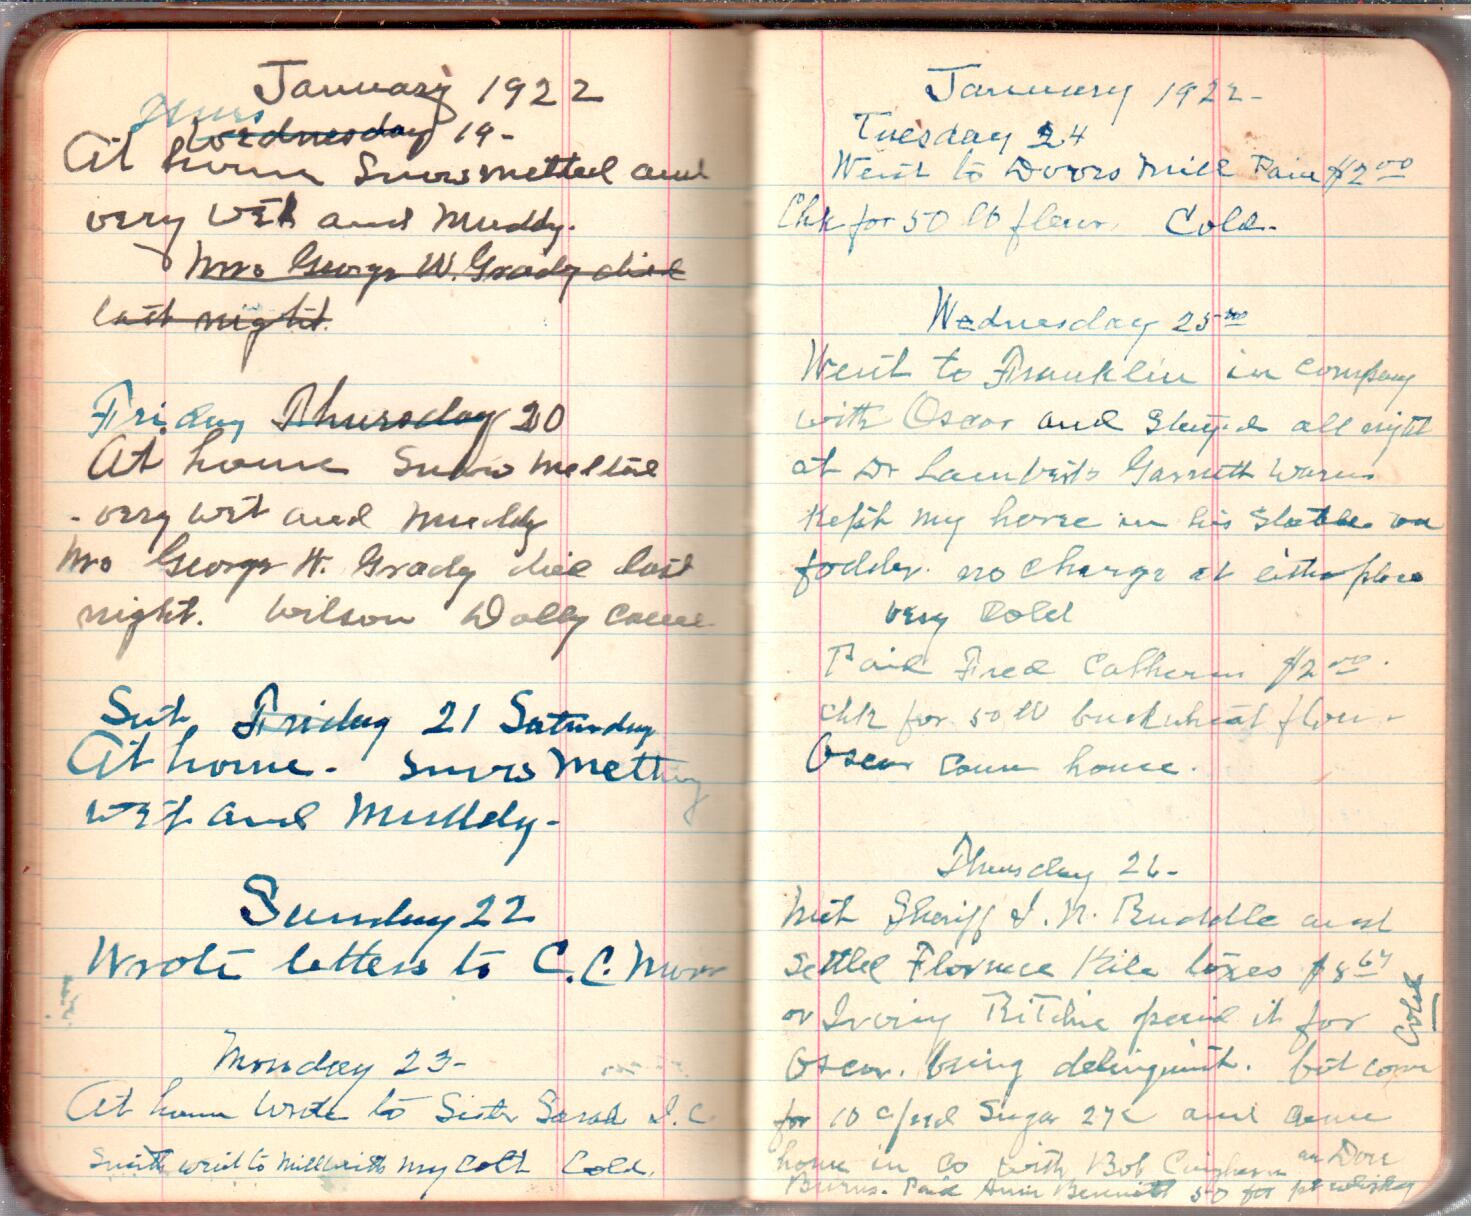 January 1922
Thurs
Wednesday 19-
At home Snow melted and
very wet and Muddy.
Mrs George W. Grady died
last night.
Friday Thursday 20
At home Snow melted
very wet and Muddy
Mrs George W. Grady died last
night. Wilson Dolly came
Sat, Friday 21 Saturday
At home. Snow Melting
wet and Muddy-
Sunday 22
Wrote letters to C.C.
Monday 23-
At home Wrote to Sister Sarah I. C
Smith went to Mill with my Colt Cold.
January 1922-
Tuesday 24
Went to Mill Paid $2 00
Chk for 50 lb flour. Cold.
Wednesday 25
Went to Franklin in company
with Oscar and Sleeped all night
at Dr Lamberts Garnett
Kept my horse in his Stable on
fodder. no charge at either place
very Cold
Paid Fred $2 00.
Chk for 50 lb buckwheat flour-
Oscar came home.
Thursday 26-
Met Sheriff I. N. Ruddle and
settled Florence Kile taxes $8
or Irving Ritchie paid it for
Cold
Oscar. being delinquent.
for 10 Sugar and came
home in Co with Bob and Don
Burns. Paid Bennett 50 for pt whiskey